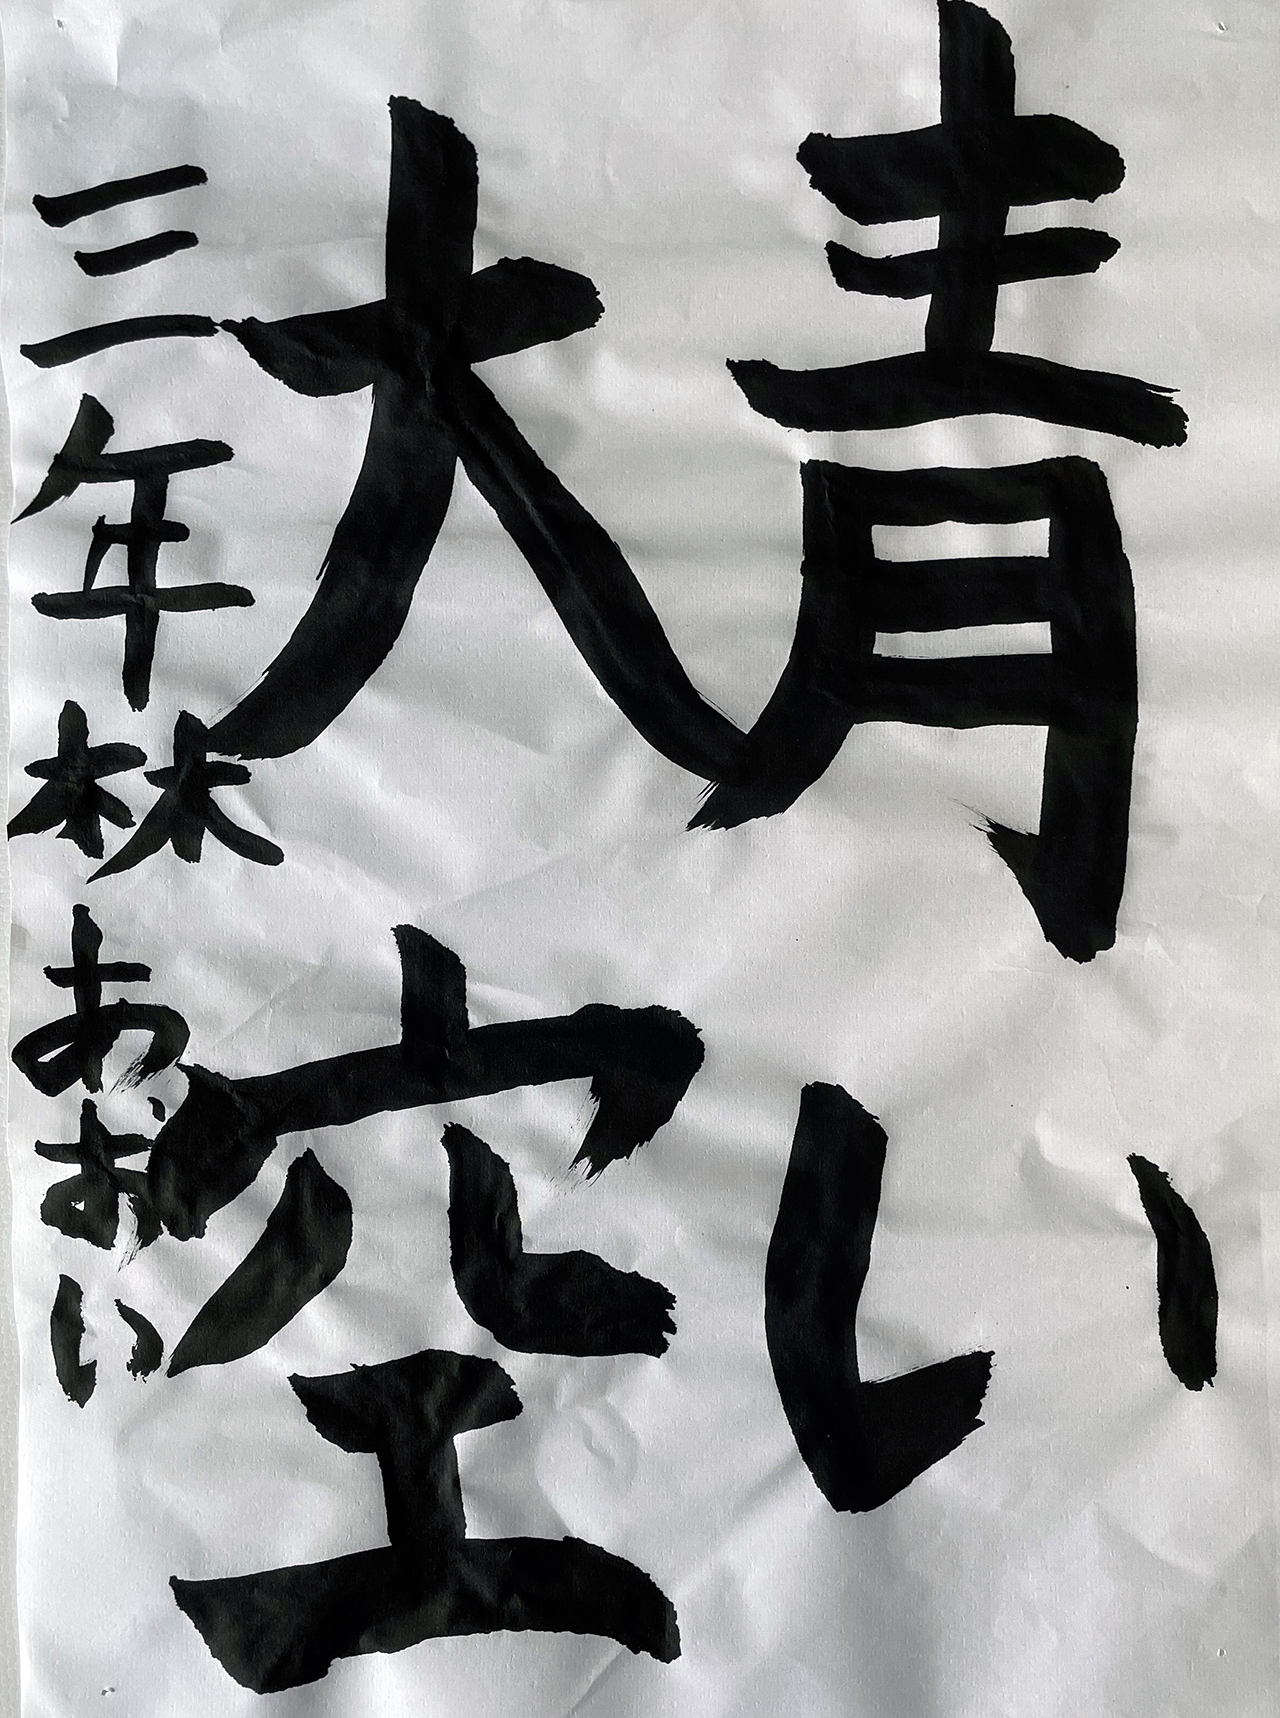 青い
大空
三年林あおい